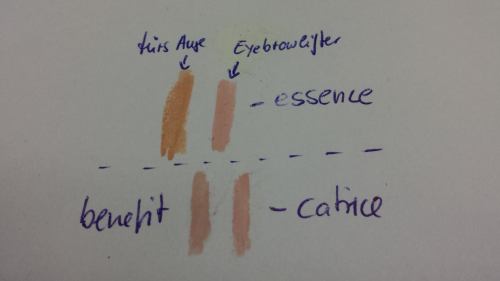 fürs Auge Eyebrowlifter
- essence
benefit - catrice